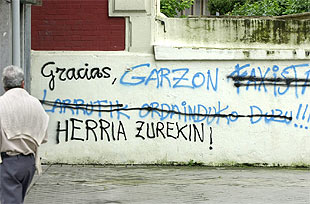 Gracias, GARZON FAXISTA
LARRUTIK ORDAINDUKO DUZU!!!
HERRIA ZUREKIN!